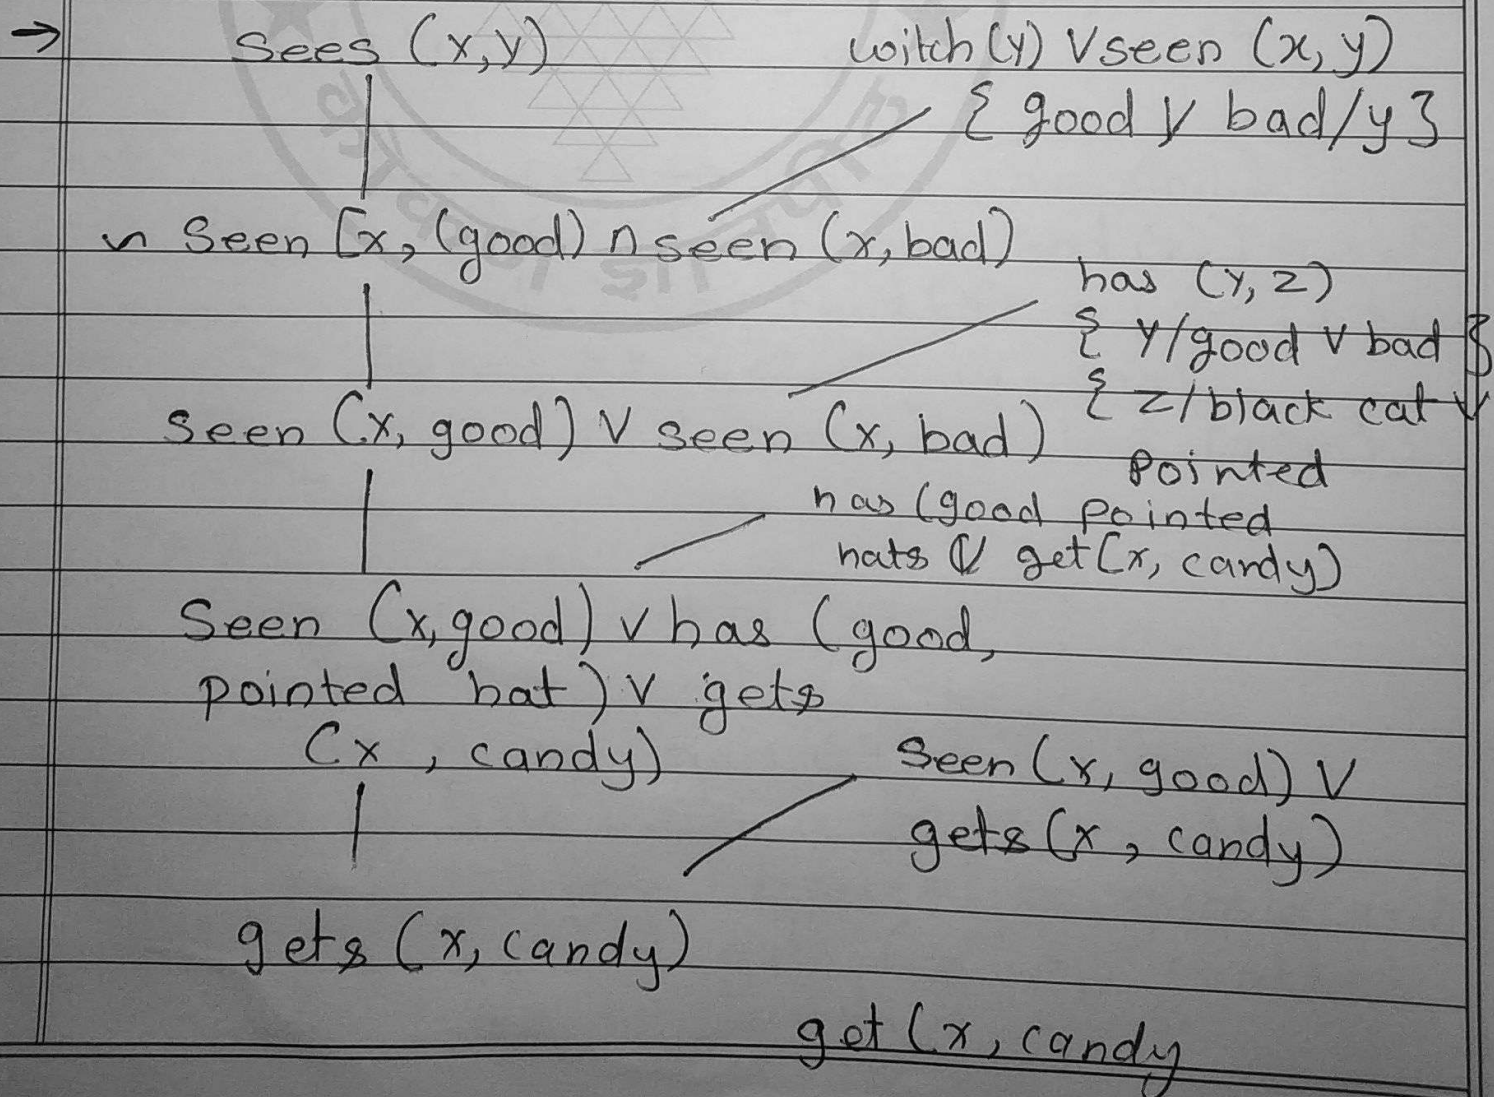 → sees (x,y) witch(y) V seen (x, y)
{ good V bad/y }
~ seen [x, (good) ∩ seen (x, bad)
has (y, z)
{ y/good V bad }
{ z/black cat V
seen (x, good) V seen (x, bad)
pointed
has (good pointed
hats V get(x, candy)
Seen (x,good) v has (good,
pointed hat) v gets
(x , candy)
seen (x, good) V
gets (x , candy)
gets (x, candy)
get (x, candy